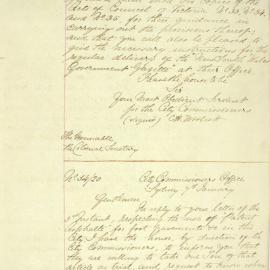 Acts of Council of Victoria No 23, No 34,
and No 35 for their guidance in
carrying out the provisions thereof,
and that you will also be pleased to
give the necessary instructions for the
regular delivery of the New South Wales
Government Gazette at their Office
I have the honor to be
Sir
Your Most Obedient Servant
for the City Commissioners
(signed) C H Woolcott
The Honorable
the Colonial Secretary
No 54/20
City Commissioners Office
Sydney January
Gentlemen
In reply to your letter of the
5th Instant, respecting the use of "Patent
Asphalte" for foot pavements in this
City I have the honor, by direction of the
City Commissioners, to inform you that
they are willing to take one Ton of that
article on trial, and request to know when